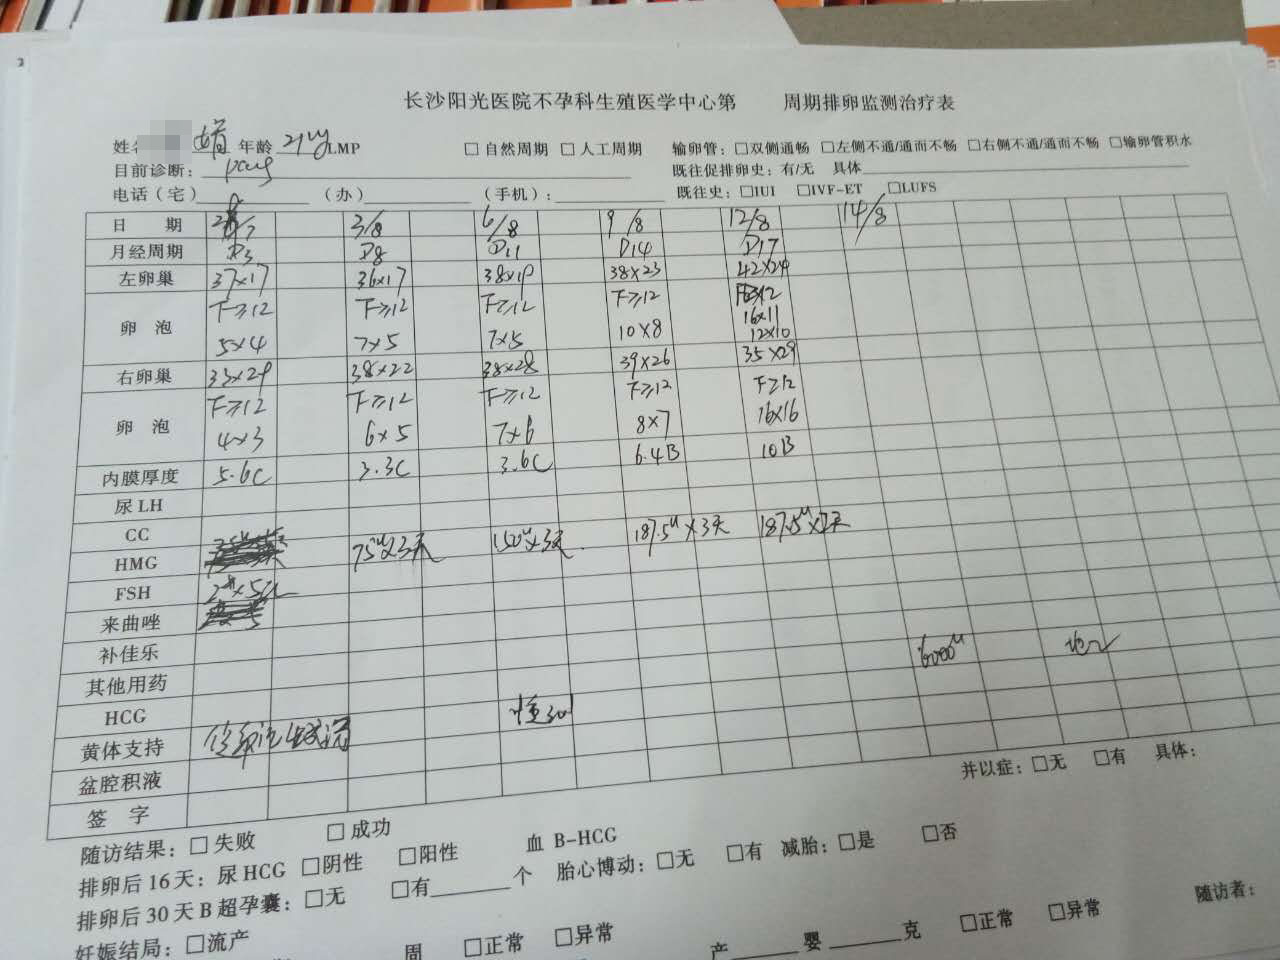 长沙阳光医院不孕科生殖医学中心第 周期排卵监测治疗表
姓名 娟 年龄 21y LMP □自然周期 □人工周期 输卵管：□双侧通畅 □左侧不通/通而不畅 □右侧不通/通而不畅 □输卵管积水
目前诊断： pcos 既往促排卵史：有/无 具体
电话（宅） （办） （手机）： 既往史：□IUI □IVF-ET □LUFS
日 期 3/8 6/8 9/8 12/8 14/8
月经周期 D3 D8 D11 D14 D17
左卵巢 37×17 36×17 38×19 38×23 42×24
卵 泡 F≥12 F≥12 F≥12 F≥12
5×4 7×5 7×5 10×8 16×11
12×10
右卵巢 33×29 38×22 38×28 39×26 35×29
卵 泡 F≥12 F≥12 F≥12 F≥12 F≥12
4×3 6×5 7×6 8×7 16×16
内膜厚度 5.6C 3.3C 3.6C 6.4B 10B
尿LH
CC
HMG 75u×3天 150u×3天 187.5u×3天 187.5u×2天
FSH
来曲唑
补佳乐
其他用药 6000u
HCG
黄体支持
盆腔积液
签 字
并以症：□无 □有 具体：
随访结果：□失败 □成功
排卵后16天：尿HCG □阴性 □阳性 血 B-HCG
排卵后30天B超孕囊：□无 □有 个 胎心博动：□无 □有 减胎：□是 □否
妊娠结局：□流产 周 □正常 □异常 产 婴 克 □正常 □异常 随访者：